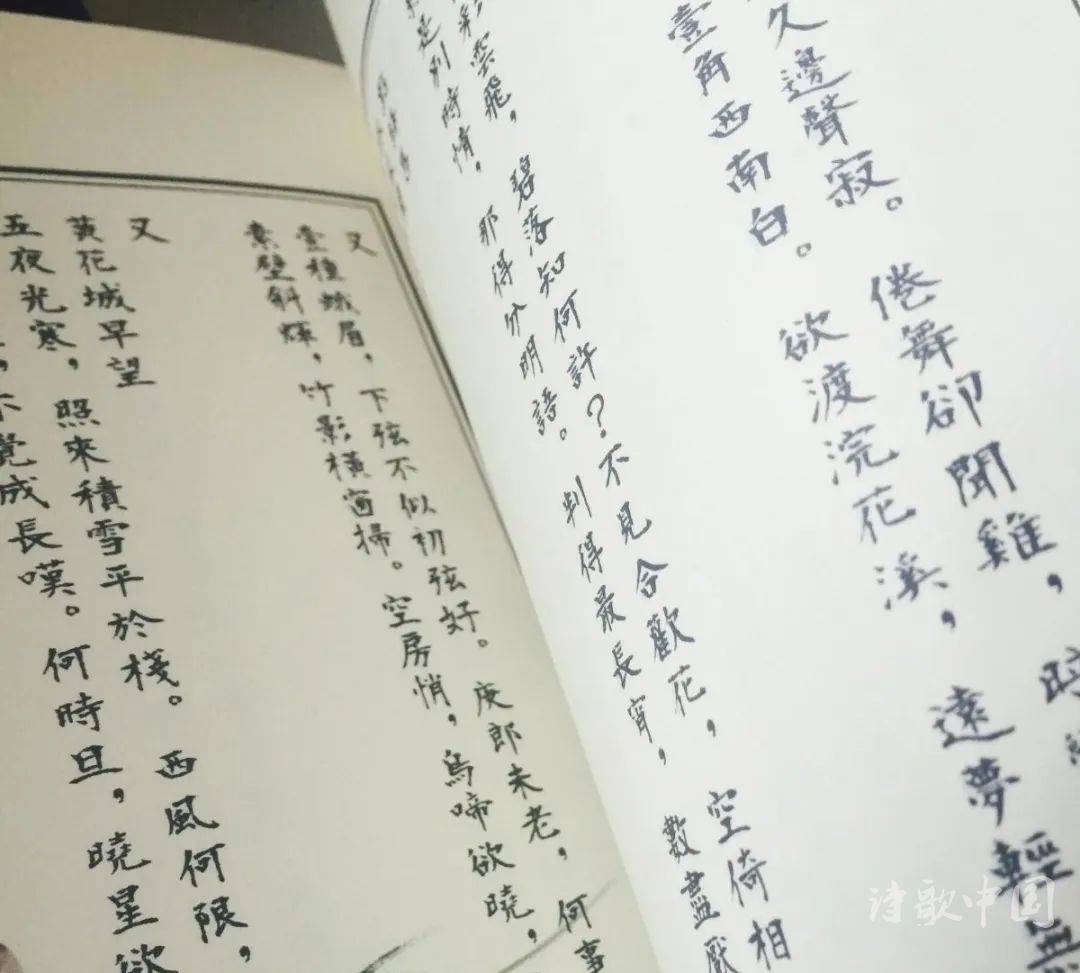 久邊聲寂。倦舞卻聞雞,
壹角西南白。欲渡浣花溪,遠夢輕無
彩雲飛,碧落知何許?不見合歡花,空倚相
是別時情,那得分明語。判得最長宵,數盡厭
又
壹種蛾眉,下弦不似初弦好。庾郎未老,何事
素壁斜輝,竹影橫窗掃。空房悄,烏啼欲曉,
又
黃花城早望
五夜光寒,照來積雪平於棧。西風何限,
不覺成長嘆。何時旦,曉星欲
诗歌中国